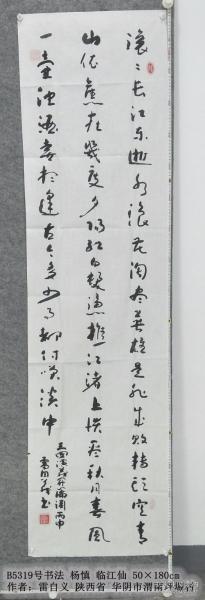 滚〻长江东逝水浪花淘尽英雄是非成败转头空青
山依舊在幾度夕阳红白髮渔樵江渚上惯看秋月春风
一壶浊酒喜相逢古今多少事都付笑谈中
三国演义开篇词丙申
雷自义书
B5319号书法 杨慎 临江仙 50×180cm
作者：雷自义 陕西省 华阴市渭南